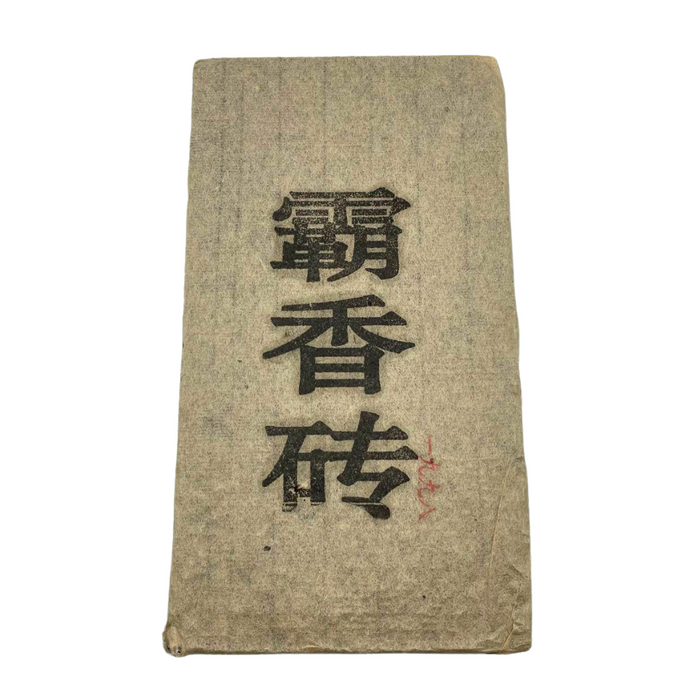 霸香砖
一九九八